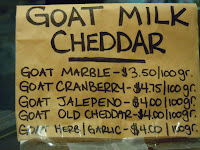 GOAT MILK
CHEDDAR
GOAT MARBLE-$3.50/100gr.
GOAT CRANBERRY-$4.75/100gr
GOAT JALEPENO-$4.00/100gr.
GOAT OLD CHEDDAR-$4.00/100gr.
GOAT HERB/GARLIC-$4.00/100gr.